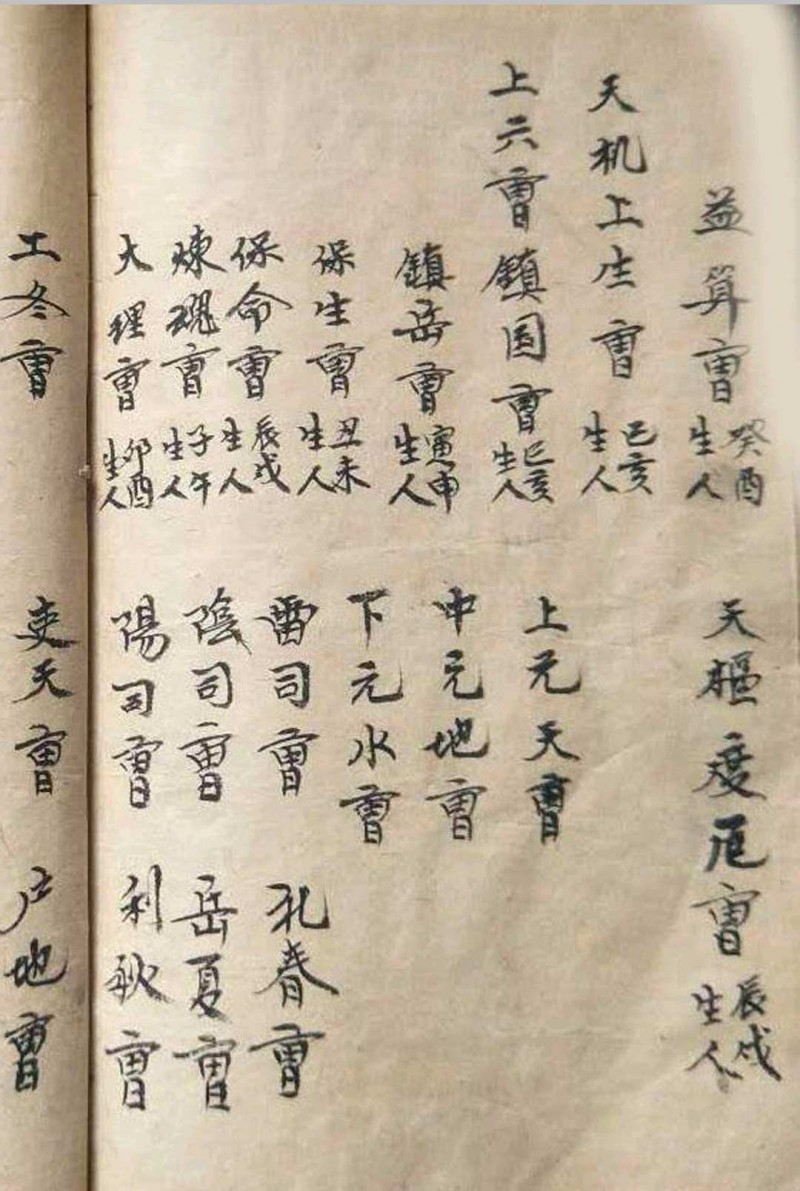 益算曹癸酉生人
天樞度厄曹辰戌生人
天机上生曹己亥生人
上六曹鎮国曹己亥生人
上元天曹
鎮岳曹寅申生人
中元地曹
保生曹丑未生人
下元水曹
保命曹辰戌生人
雷司曹
礼春曹
煉魂曹子午生人
陰司曹
岳夏曹
大理曹卯酉生人
陽司曹
利秋曹
工冬曹
吏天曹
户地曹